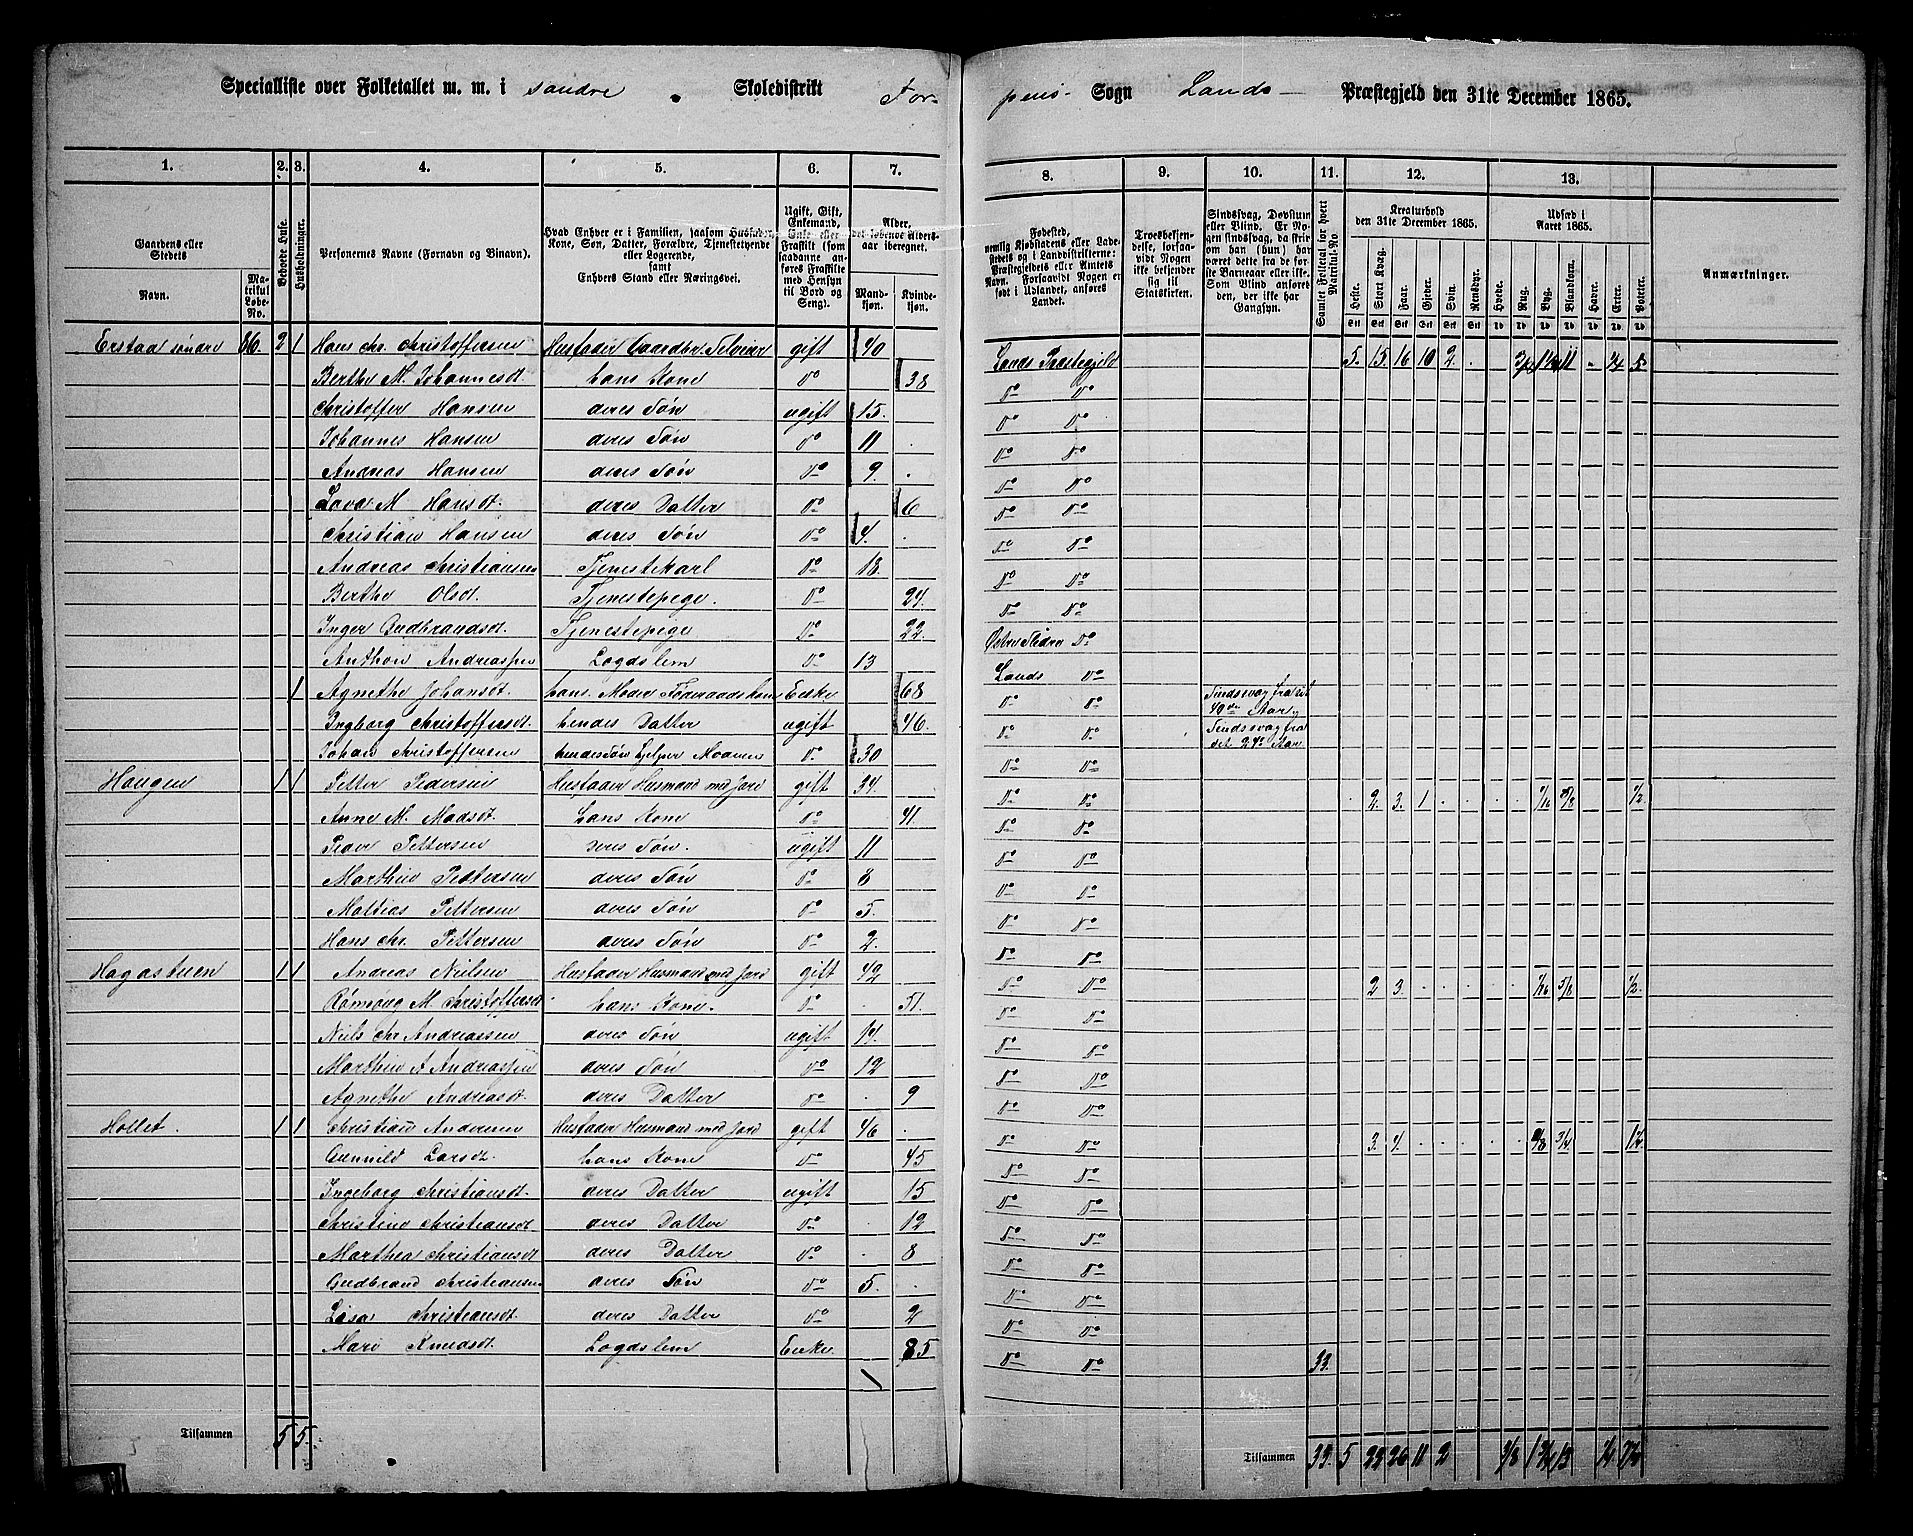 Specialliste over Folketallet m. m. i søndre Skoledistrikt Tor-
pens Sogn Lands Præstegjeld den 31te December 1865.
1. 2. 3. 4. 5. 6. 7. 8. 9. 10. 11. 12. 13.
Gaardens eller Stedets
Navn.
Matrikul Løbe-No.
Beboede Huse.
Husholdninger.
Personernes Navne (Fornavn og Binavn).
Hvad Enhver er i Familien, saasom Husfader, Kone, Søn, Datter, Forældre, Tjenestetyende eller Logerende, samt Enhvers Stand eller Næringsvei.
Ugift, Gift, Enkemand, Enke eller Fraskilt (som saadanne anføres Fraskilte med Hensyn til Bord og Seng).
Alder, det løbende Alders-aar iberegnet.
Mandkjøn. Kvindekjøn.
Fødested, nemlig Kjøbstadens eller Ladestedets og i Landdistrikterne: Præstegjeldets eller Amtets Navn. Forsaavidt Nogen er født i Udlandet, anføres Landet.
Troesbekjendelse, forsaavidt Nogen ikke bekjender sig til Statskirken.
Sindssvag, Døvstum eller Blind. Er Nogen sindssvag, da skrives om han (hun) har været dette fra de første Barneaar eller ikke. Som Blind anføres den, der ikke har Gangsyn.
Samlet Folketal for hvert Matrikul-No.
Kreaturhold den 31te December 1865.
Heste. Stort Kvæg. Faar. Gjeder. Svin. Rensdyr.
Udsæd i Aaret 1865.
Hvede. Rug. Byg. Blandkorn. Havre. Erter. Poteter.
Anmærkninger.
Erstad søndre 66. 2 1 Hans Chr. Christoffersen Husfader Gaardbr. Selveier gift 40 Lands Præstegjeld 5. 15 16 10 2 11 1/4 5
Berthe M. Johannesdt. hans Kone do 38 do do
Christoffer Hansen deres Søn ugift 15. do do
Johannes Hansen deres Søn do 11 do do
Andreas Hansen deres Søn do 9. do do
Lova M Hansdt. deres Datter do 6 do do
Christian Hansen deres Søn do 4. do do
Andreas Christiansen Tjenestekarl do 18. do do
Berthe Olsdt. Tjenestepige. do 24. do do
Inger Gudbrandsdt. Tjenestepige do 22. Østre Slidre do
Anthon Andreassen Logdslem do 13 Lands do
1 Agnethe Johansdt. hans Moder Føderaadskone Enke 68 do do Sindssvag fra sit 40de Aar,
Ingborg Christoffersdt. hendes Datter ugift 46. do do Sindssvag fra det 24de Aar
Johan Christoffersen hendes Søn hjelper Moderen do 30 do do
Haugen 1 1 Petter Pedersen Husfader Husmand med Jord gift 34. do do 2. 3. 1 1/16 7/8 1/2
Anne M. Madsdt. hans Kone do 41 do do
Peder Pettersen deres Søn. ugift 11 do do
Marthin Pettersen deres Søn do 8 do do
Mathias Pettersen deres Søn do 5. do do
Hans Chr. Pettersen deres Søn do 2. do do
Hagastuen 1 1 Andreas Nielsen Husfader Husmand med Jord gift 42 do do 2 3. 1/16 5/8 1/2
Rømøug M. Christoffersdt hans Kone. do 51. do do
Niels Chr Andreassen deres Søn ugift 14. do do
Marthin A Andreassen deres Søn do 12 do do
Agnethe Andreasdt. deres Datter do 9 do do
Hollet. 1 1 Christian Andersen Husfader Husmand med Jord gift 46 do do 3. 4. 3/4
Gunnild Larsdt. hans Kone do 45 do do
Ingeborg Christiansdt. deres Datter ugift 15 do do
Christine Christiansdt deres Datter do 12 do do
Marthea Christiansdt deres Datter do 8 do do
Gudbrand Christiansen deres Søn do 5. do do
Lisa Christiansdt. deres Datter do 2 do do
Mari Knudsdt. Logdslem Enke. 85 do do 33.
Tilsammen 5 5. Tilsammen 33. 5 22 26 11 2 3/8